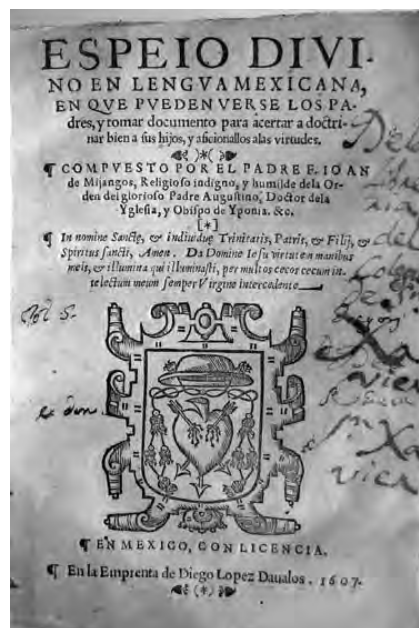 ESPEIO DIVI-
NO EN LENGVA MEXICANA,
EN QVE PVEDEN VERSE LOS PA-
dres, y tomar documento para acertar a doctri-
nar bien a sus hijos, y aficionallos alas virtudes.
)*(
¶ COMPVESTO POR EL PADRE F. IOAN
de Mijangos, Religioso indigno, y humilde dela Or-
den del glorioso Padre Augustino, Doctor dela
Yglesia, y Obispo de Yponia. &c.
[*]
¶ In nomine Sanctę, & indiuiduę Trinitatis, Patris, & Filij, &
Spiritus sancti, Amen. Da Domine Iesu virtutem manibus
meis, & illumina qui illuminasti, per multos cecos cecum in-
telectum meum semper Virgine intercedente
¶ EN MEXICO, CON LICENCIA.
¶ En la Emprenta de Diego Lopez Daualos. 1607.
(*)
Xa
vier